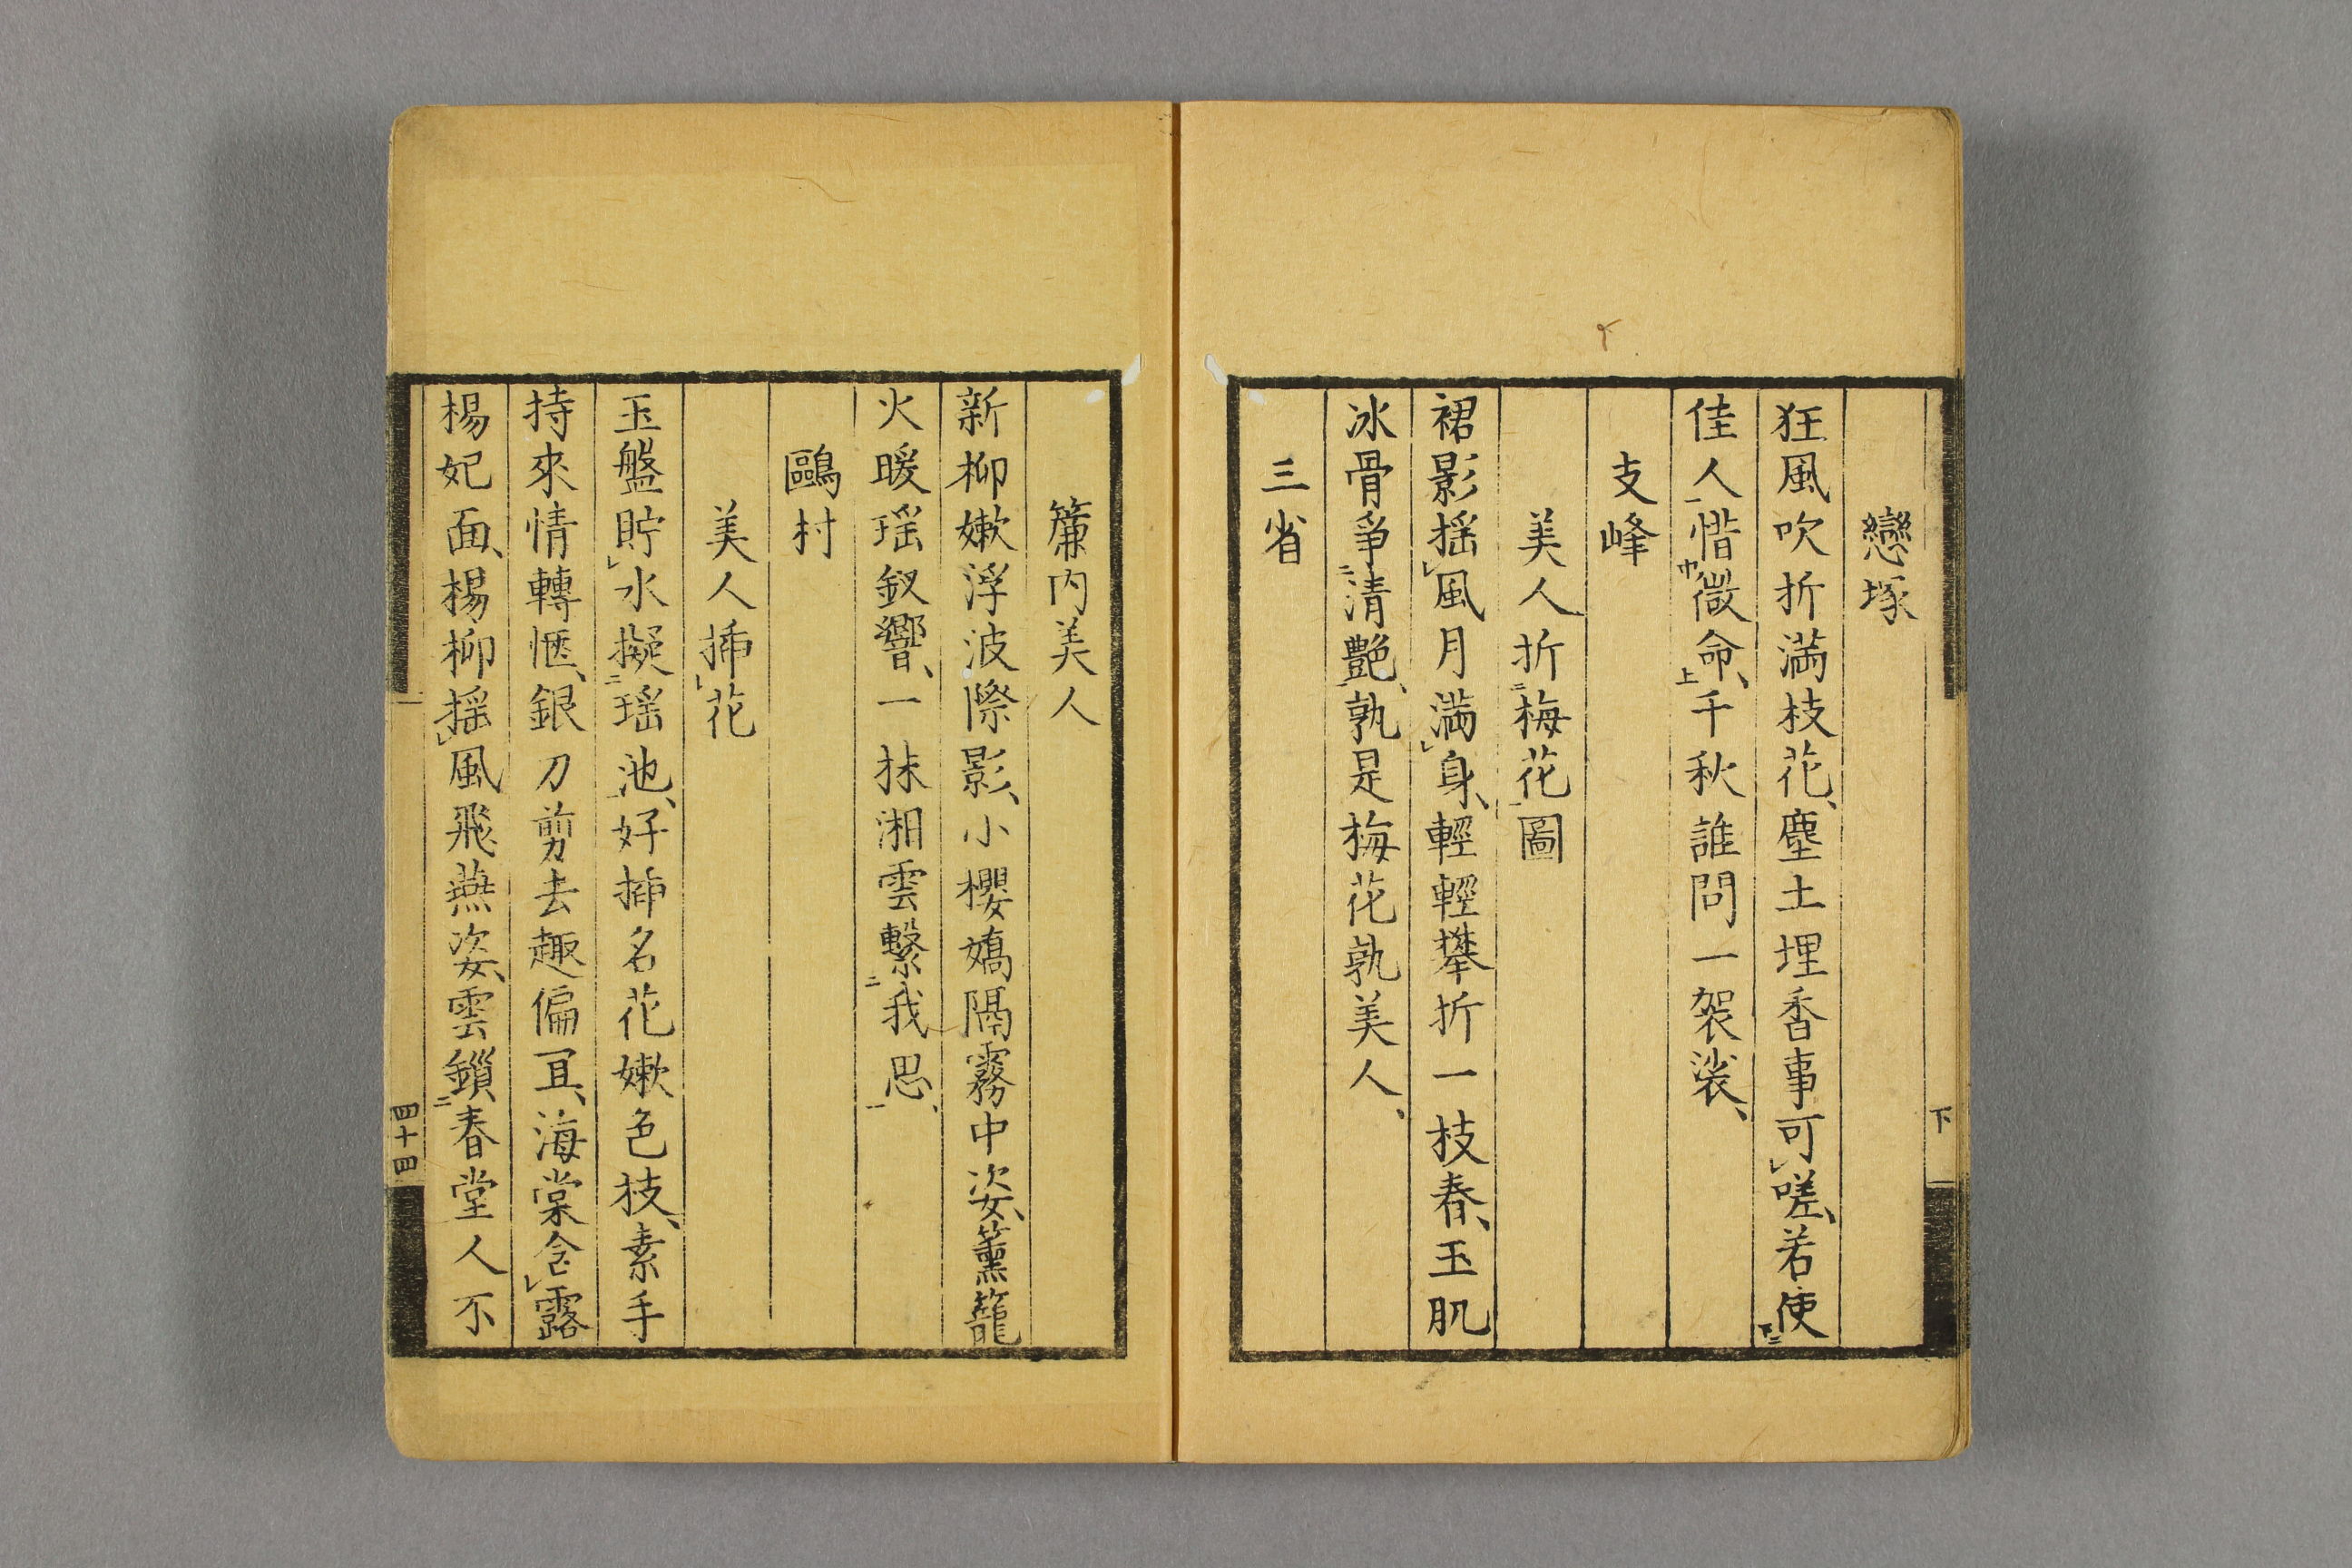 戀塚
狂風吹折満枝花、塵土埋香事可㆑嗟、若使㆘㆓
佳人㆒惜㆗微命㆖、千秋誰問一袈裟、
支峰
美人折㆓梅花㆒圖
裙影揺㆑風月満㆑身、輕輕攀折一枝春、玉肌
冰骨爭㆓清艷㆒、孰是梅花孰美人、
三省
下
簾内美人
新柳嫩浮波際影、小櫻嬌隔霧中姿、薫籠
火暖瑶釵響、一抹湘雲繋㆓我思㆒、
鷗村
美人揷㆑花
玉盤貯㆑水擬㆓瑶池㆒、好揷名花嫩色枝、素手
持來情轉愜、銀刀剪去趣偏冝、海棠含㆑露
楊妃面、楊柳揺㆑風飛燕姿、雲鎻㆓春堂人不
四十四